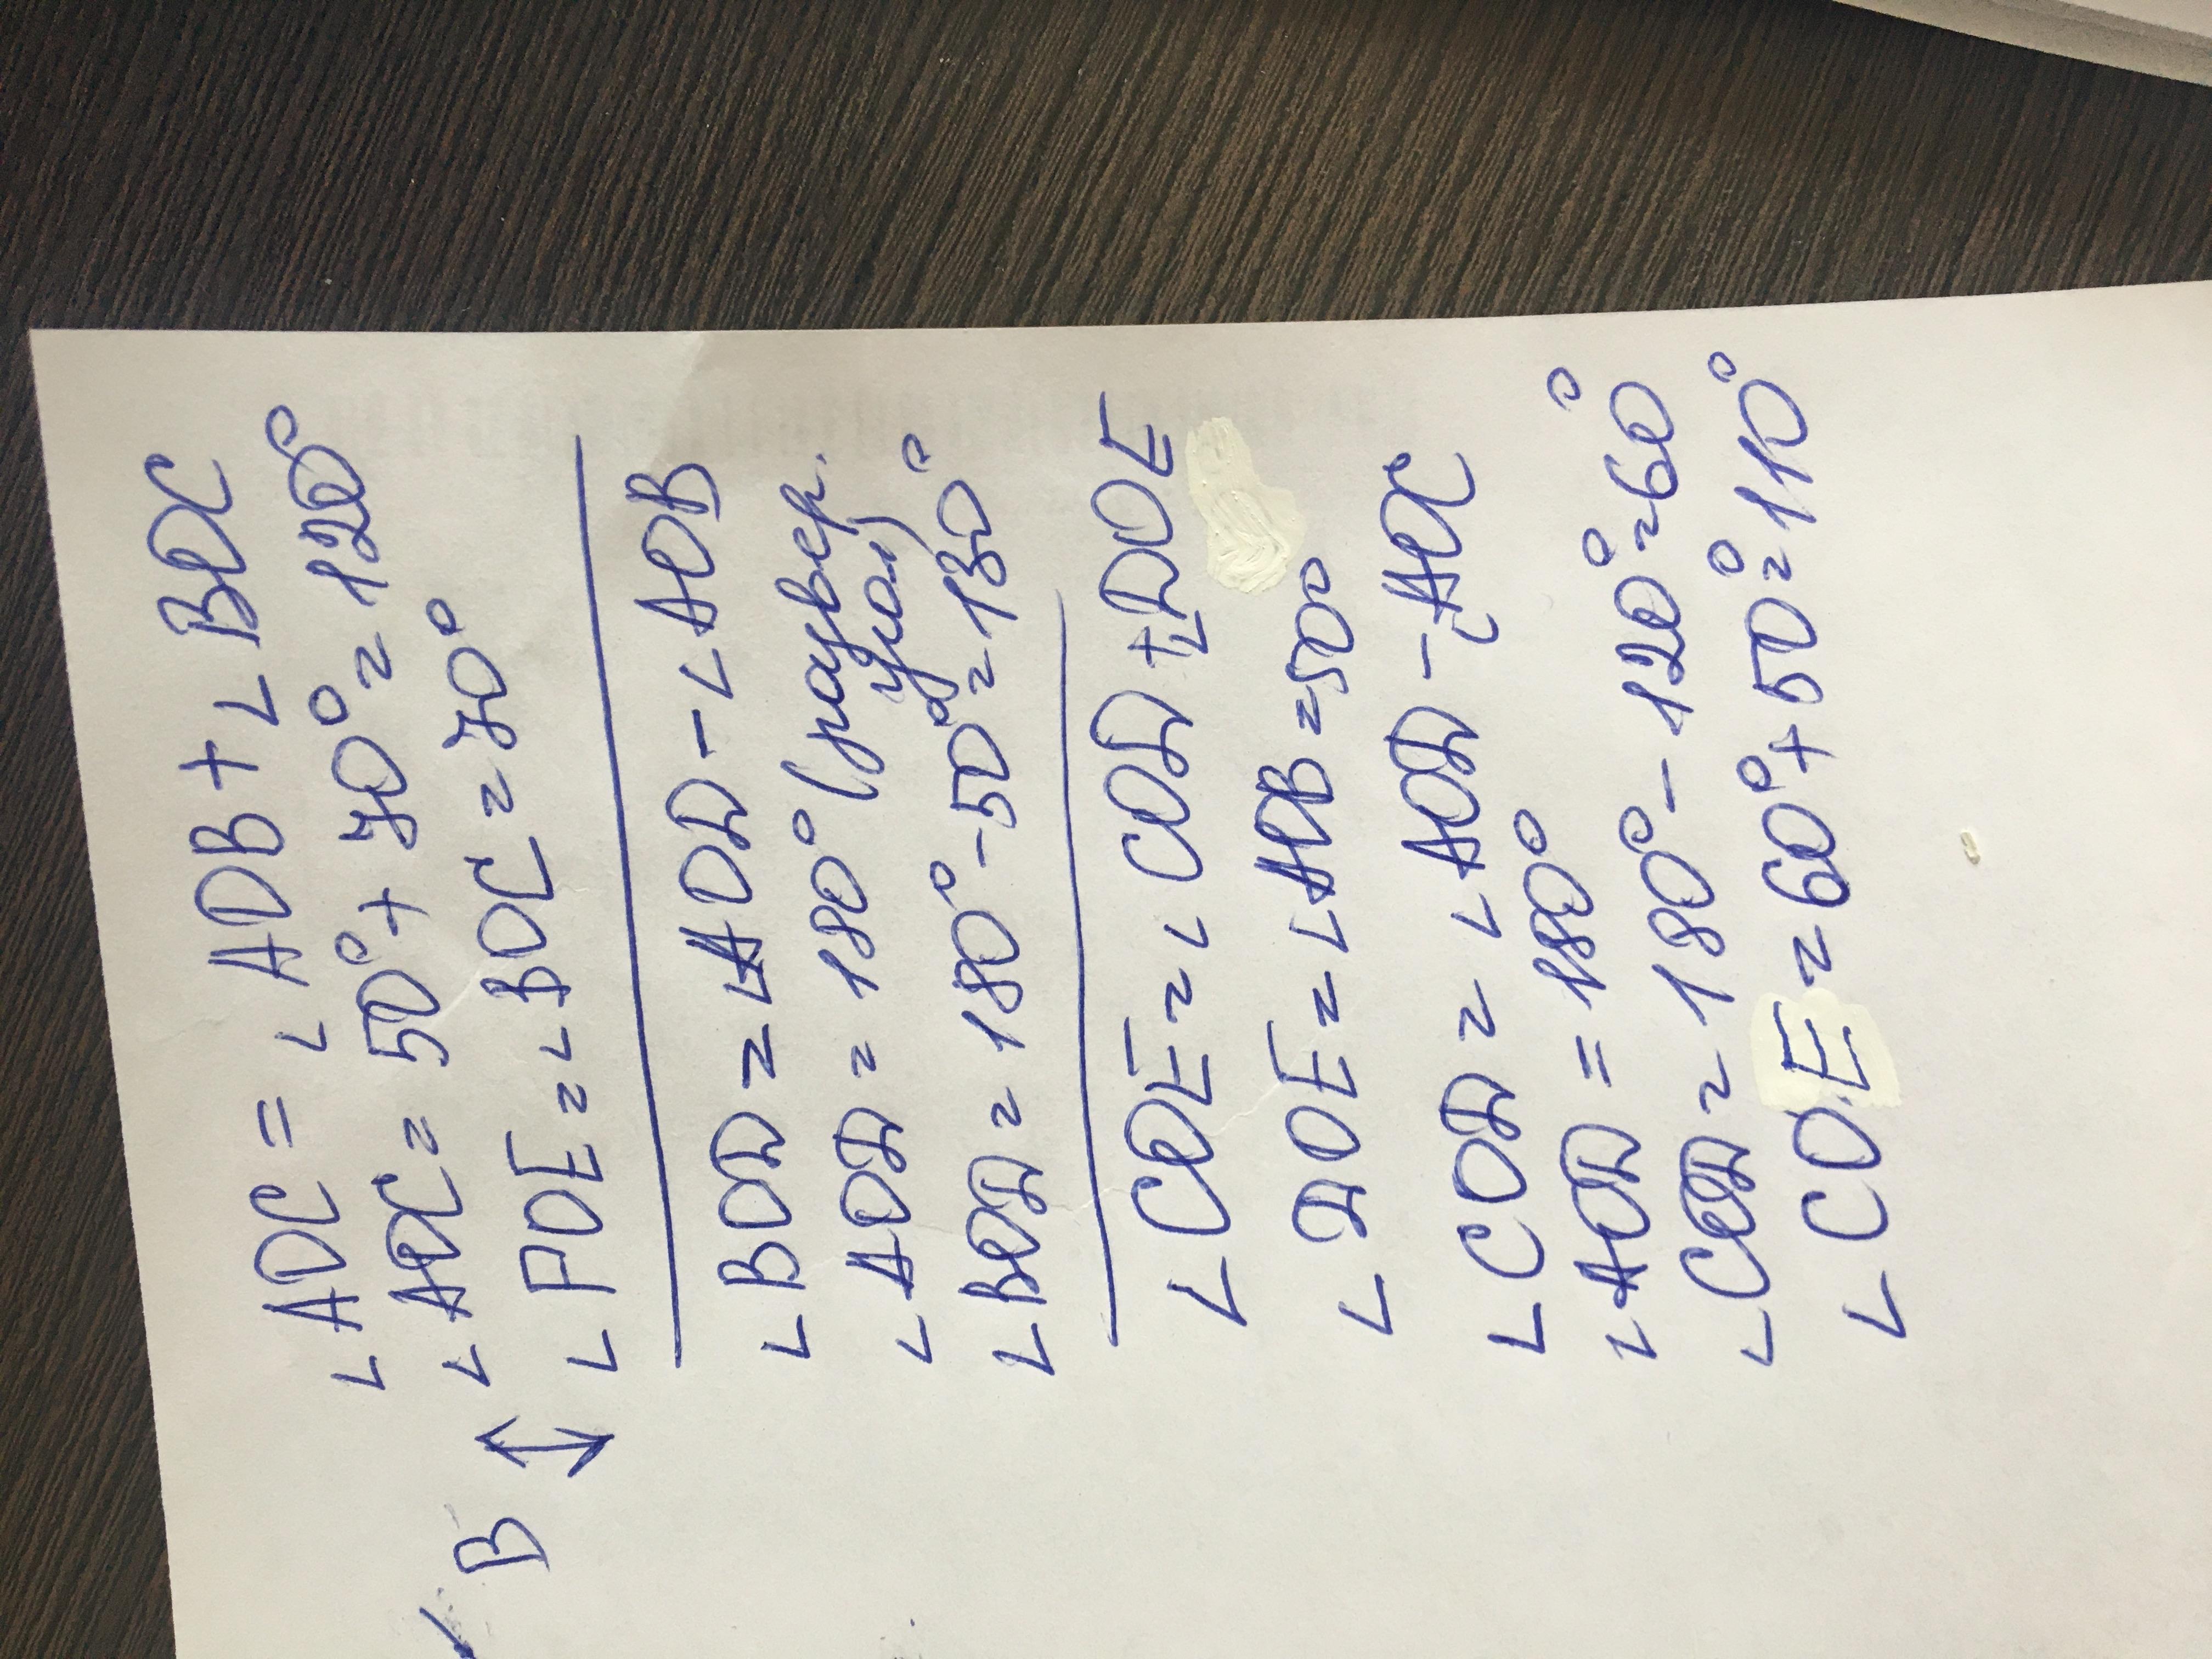 ∠ADC = ∠ADB + ∠BOC
∠AOC = 50° + 70° = 120°
B ↔ ∠POE = ∠BOC = 70°
∠BOD = ∠AOD - ∠AOB
∠AOD = 180° (развер. угол)
∠BOD = 180° - 50° = 130°
∠COE = ∠COD + ∠DOE
∠DOE = ∠AOB = 50°
∠COD = ∠AOD - ∠AOC
∠AOD = 180°
∠COD = 180° - 120° = 60°
∠COE = 60° + 50° = 110°